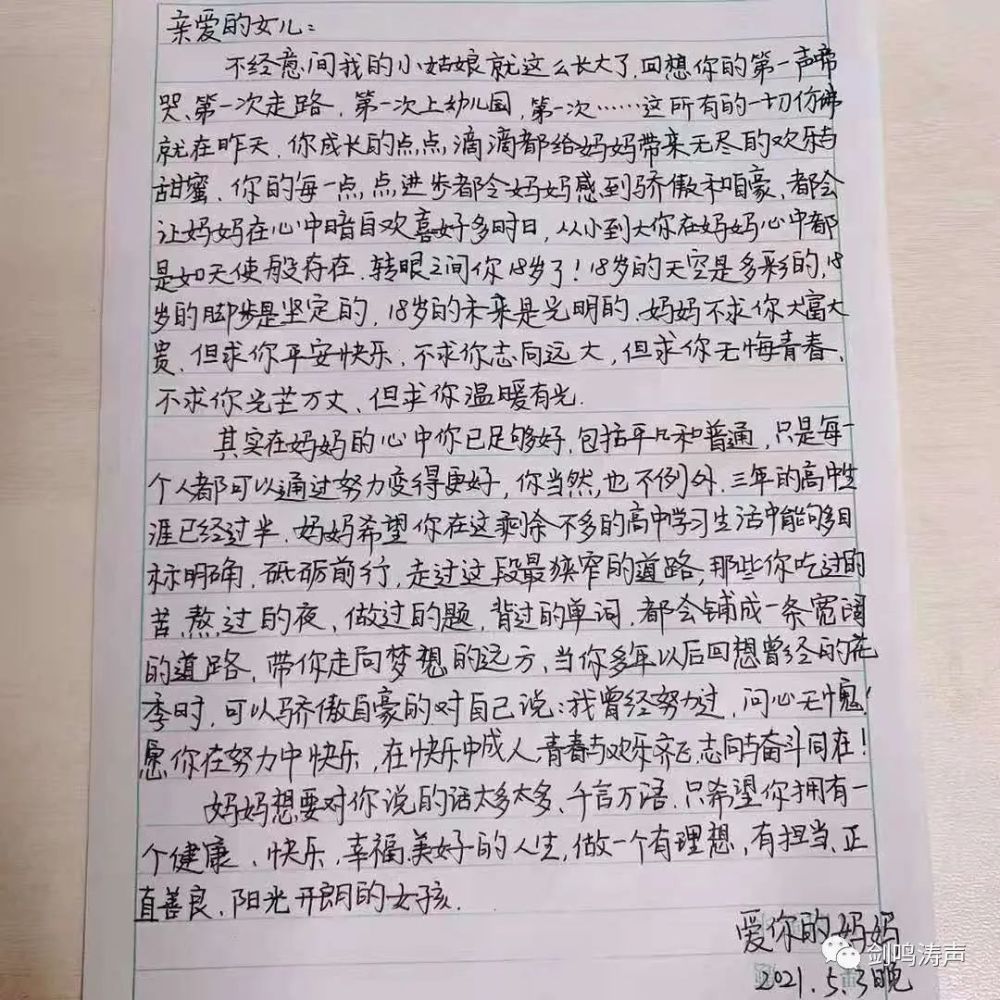 亲爱的女儿：
不经意间我的小姑娘就这么长大了,回想你的第一声啼
哭、第一次走路、第一次上幼儿园,第一次……这所有的一切仿佛
就在昨天.你成长的点点滴滴都给妈妈带来无尽的欢乐与
甜蜜、你的每一点点进步都令妈妈感到骄傲和自豪、都会
让妈妈在心中暗自欢喜好多时日,从小到大你在妈妈心中都
是如天使般存在.转眼之间你18岁了！18岁的天空是多彩的,18
岁的脚步是坚定的,18岁的未来是光明的.妈妈不求你大富大
贵、但求你平安快乐、不求你志向远大,但求你无悔青春、
不求你光芒万丈、但求你温暖有光.
其实在妈妈的心中你已足够好,包括平凡和普通,只是每一
个人都可以通过努力变得更好,你当然也不例外.三年的高中生
涯已经过半、妈妈希望你在这剩余不多的高中学习生活中能够目
标明确、砥砺前行,走过这段最狭窄的道路,那些你吃过的
苦、熬过的夜、做过的题,背过的单词、都会铺成一条宽阔
的道路、带你走向梦想的远方、当你多年以后回想曾经的花
季时,可以骄傲自豪的对自己说:我曾经努力过,问心无愧！
愿你在努力中快乐,在快乐中成人,青春与欢乐齐飞,志向与奋斗同在！
妈妈想要对你说的话太多太多、千言万语、只希望你拥有一
个健康、快乐、幸福、美好的人生,做一个有理想、有担当、正
直善良、阳光开朗的女孩.
爱你的妈妈
2021.5.3晚
剑鸣涛声